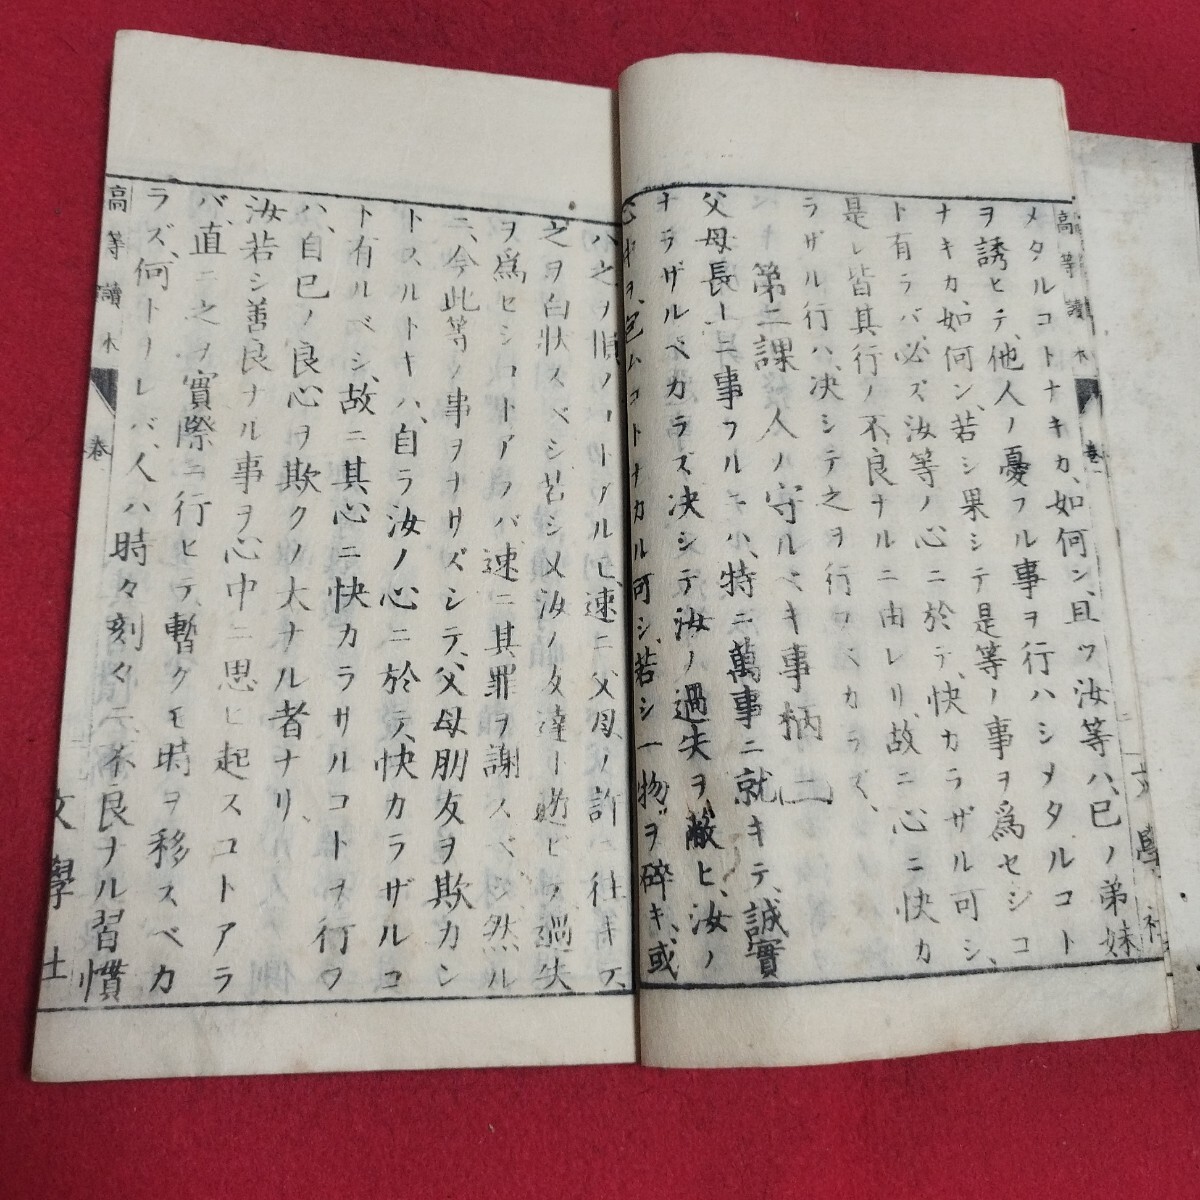 高等讀本 卷二 文學社
メタルコトナキカ、如何ン、且ツ汝等ハ、己ノ弟妹
ヲ誘ヒテ、他人ノ憂フル事ヲ行ハシメタルコト
ナキカ、如何ン、若シ果シテ是等ノ事ヲ爲セシコ
ト有ラバ、必ズ汝等ノ心ニ於テ、快カラザル可シ、
是レ皆其行ノ不良ナルニ由レリ、故ニ心ニ快カ
ラザル行ハ、決シテ之ヲ行フベカラズ、
第二課 人ノ守ルベキ事柄 二
父母長上ニ事フルニハ、特ニ萬事ニ就キテ、誠實
ナラザルベカラズ、決シテ汝ノ過失ヲ蔽ヒ、汝ノ
心中ヲ、包ムコトナカル可シ、若シ一物ヲ碎キ、或
ハ之ヲ損ノ アル 速ニ父母ノ許ニ往キテ、
之ヲ白狀スベシ、若シ又汝ノ友達ト遊ビテ過失
ヲ爲セシコトアラバ、速ニ其罪ヲ謝スベシ、然ル
ニ、今此等ノ事ヲナサズシテ、父母朋友ヲ欺カン
トスルトキハ、自ラ汝ノ心ニ於テ、快カラザルコ
ト有ルベシ、故ニ其心ニ快カラサルコトヲ行フ
ハ、自己ノ良心ヲ欺クノ大ナル者ナリ、
汝若シ善良ナル事ヲ心中ニ思ヒ起スコトアラ
バ、直ニ之ヲ實際ニ行ヒテ、暫クモ時ヲ移スベカ
ラズ、何トナレバ、人ハ時々刻々ニ、不良ナル習慣
高等讀本 卷 文學士